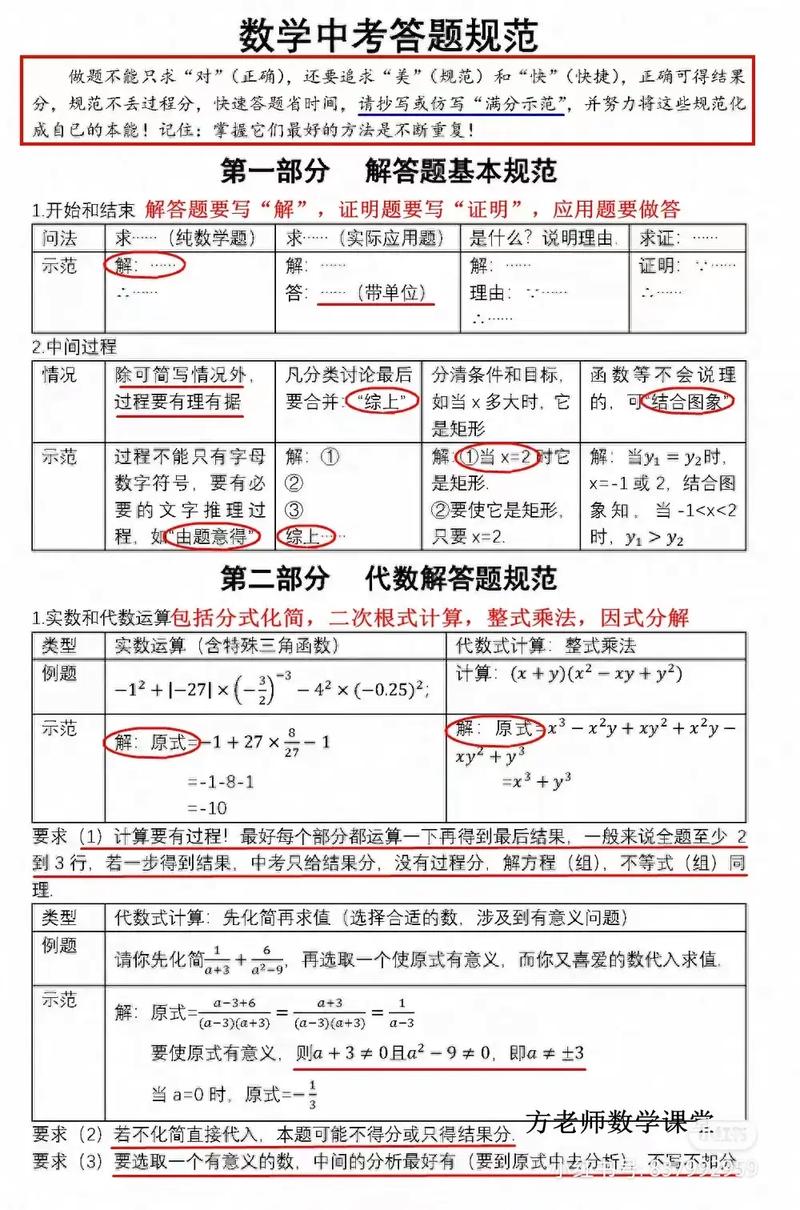 数学中考答题规范
做题不能只求“对”(正确),还要追求“美”(规范)和“快”(快捷),正确可得结果
分,规范不丢过程分,快速答题省时间,请抄写或仿写“满分示范”,并努力将这些规范化
成自己的本能!记住:掌握它们最好的方法是不断重复!
第一部分 解答题基本规范
1.开始和结束 解答题要写“解”,证明题要写“证明”,应用题要做答
问法 求……(纯数学题) 求……(实际应用题) 是什么?说明理由. 求证:……
示范 解:…… 解:…… 解:…… 证明:∵……
∴…… 答:……(带单位) 理由:∵…… ∴……
∴……
2.中间过程
情况 除可简写情况外, 凡分类讨论最后 分清条件和目标, 函数等不会说理
过程要有理有据 要合并:“综上” 如当x多大时,它 的,可“结合图象”
是矩形
示范 过程不能只有字母 解:① 解:①当x=2时它 解:当y₁=y₂时,
数字符号,要有必 ② 是矩形. x=-1或2,结合图
要的文字推理过 ③ ②要使它是矩形, 象知,当-1<x<2
程,如“由题意得” 综上…… 只要x=2. 时,y₁>y₂
第二部分 代数解答题规范
1.实数和代数运算包括分式化简,二次根式计算,整式乘法,因式分解
类型 实数运算(含特殊三角函数) 代数式计算:整式乘法
例题 −1²+|−27|×(−3/2)⁻³−4²×(−0.25)²; 计算:(x+y)(x²−xy+y²)
示范 解:原式=−1+27×8/27−1 解:原式=x³−x²y+xy²+x²y−
xy²+y³
=-1-8-1 =x³+y³
=-10
要求(1)计算要有过程!最好每个部分都运算一下再得到最后结果,一般来说全题至少 2
到3行,若一步得到结果,中考只给结果分,没有过程分,解方程(组),不等式(组)同
理.
类型 代数式计算:先化简再求值(选择合适的数,涉及到有意义问题)
例题 请你先化简1/(a+3)+6/(a²−9),再选取一个使原式有意义,而你又喜爱的数代入求值.
示范 解:原式=(a−3+6)/((a−3)(a+3))=(a+3)/((a−3)(a+3))=1/(a−3)
要使原式有意义,则a+3≠0且a²−9≠0,即a≠±3
当a=0时,原式=−1/3
方老师数学课堂
要求(2)若不化简直接代入,本题可能不得分或只得结果分.
小红书
要求(3)要选取一个有意义的数,中间的分析最好有(要到原式中去分析),不写不扣分